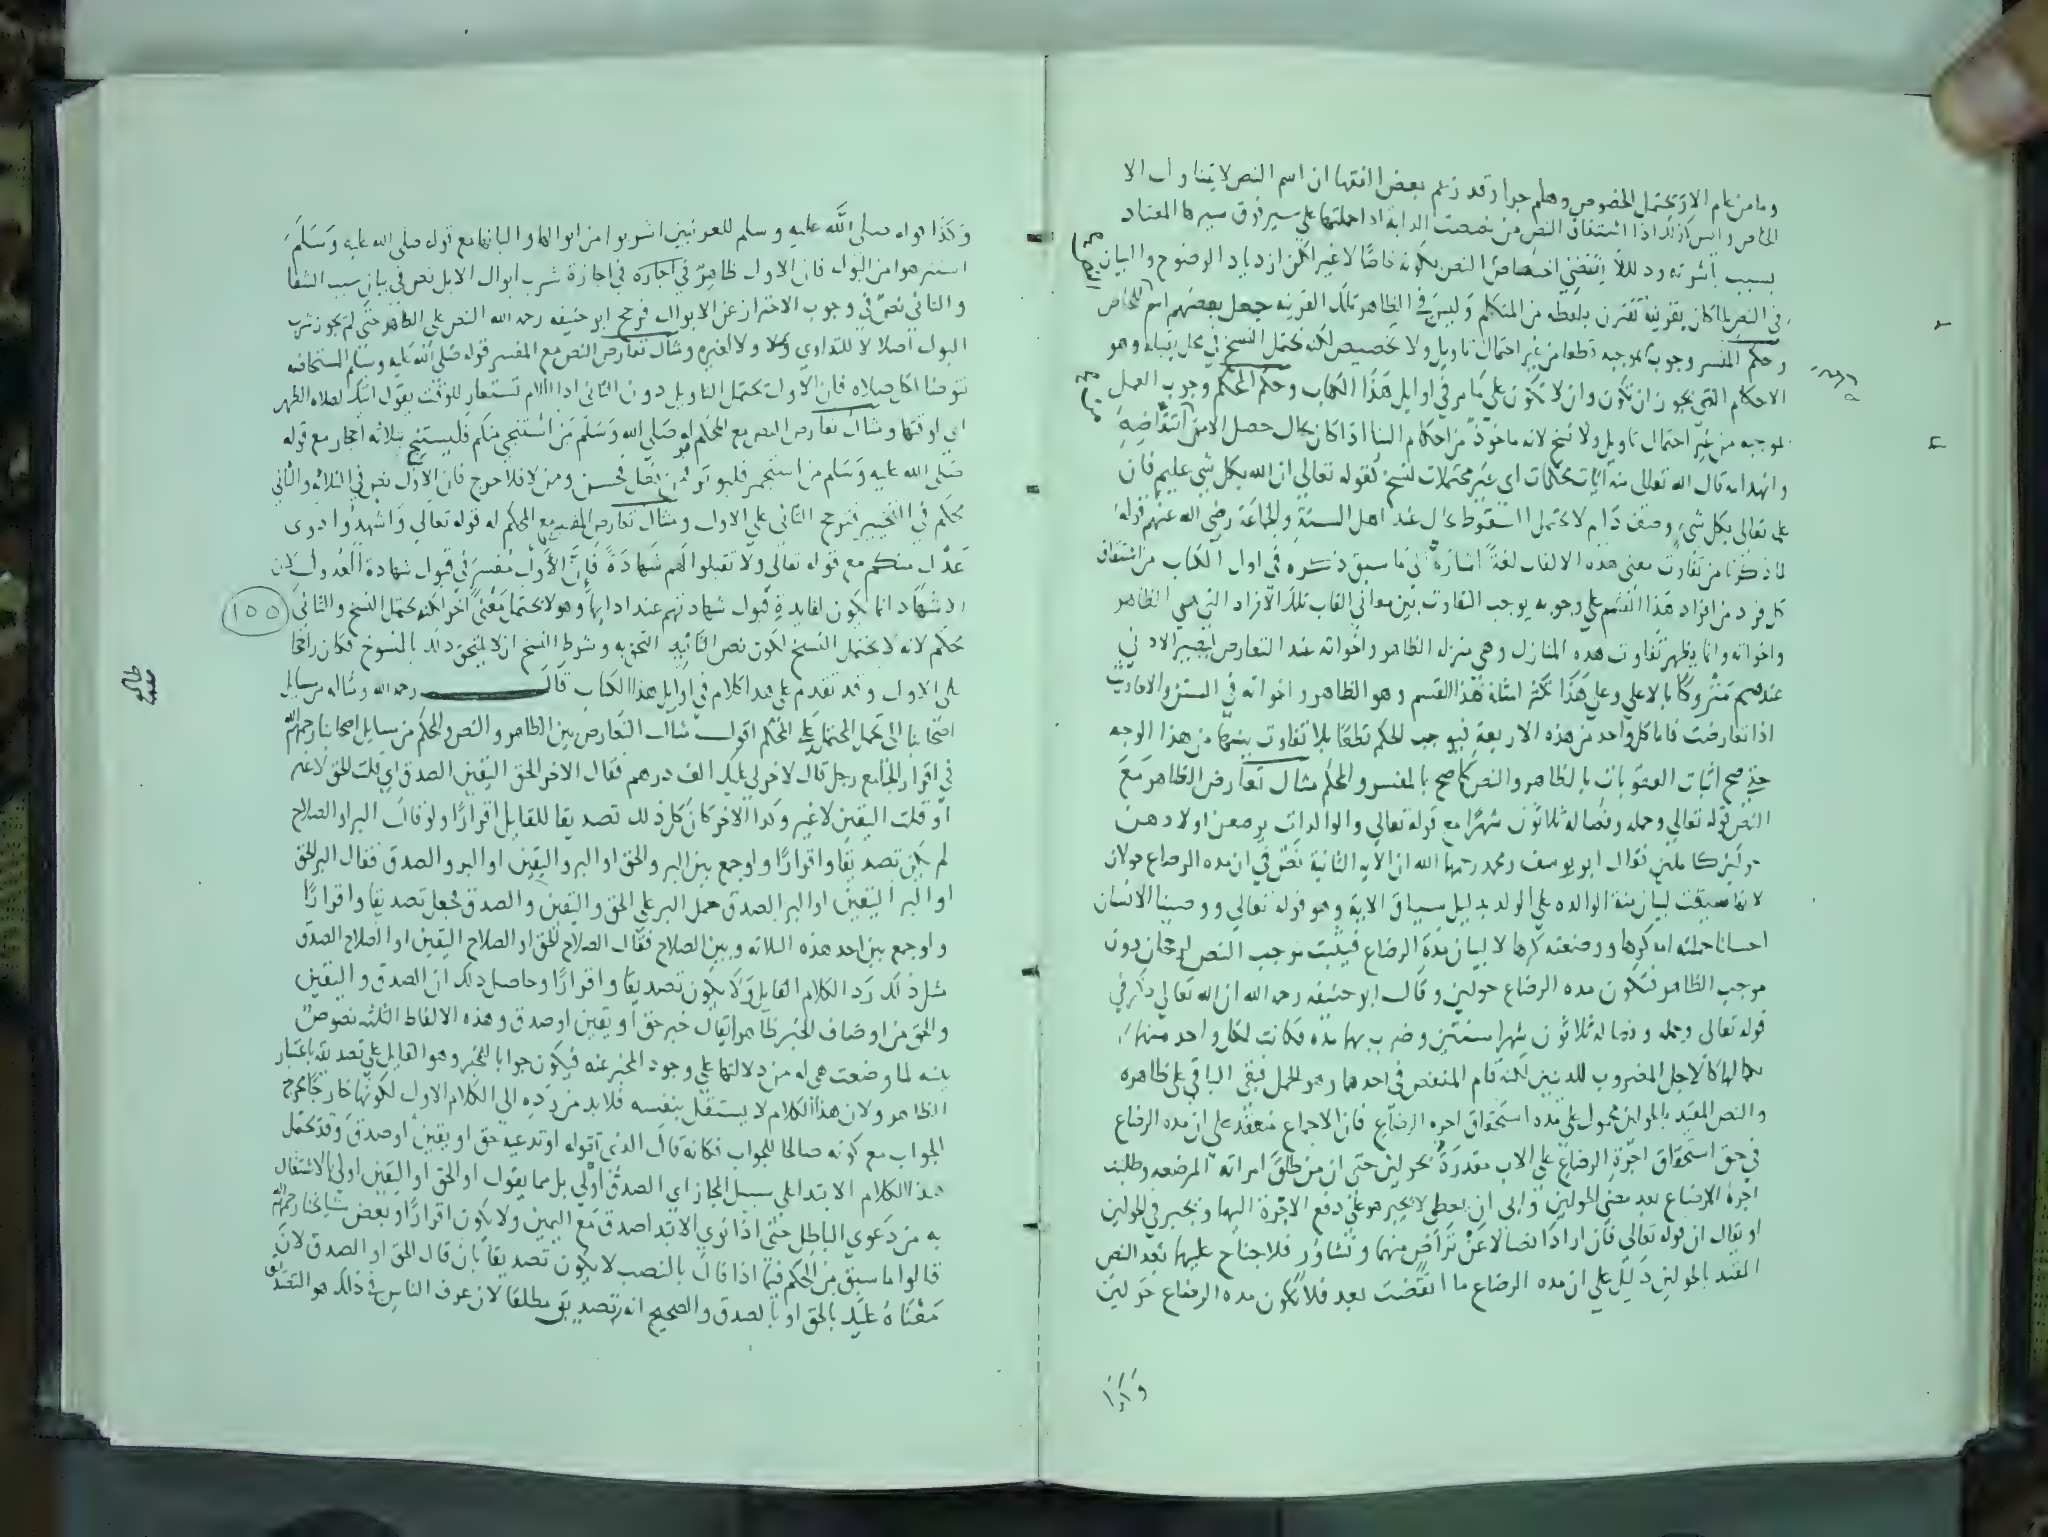 وما من عام الا ويحتمل الخصوص وهلم جرا وقد زعم بعض الفقها ان اسم النص لا يتناول الا
الخاص وليس كذلك اذا اشتقاق النص من نصصت الدابة اذا حملتها على سير فوق سيرها المعتاد
بسبب باشرته ودللا يقتضي اختصاص النص بكونه خاصا لا غير لكن ازدياد الوضوح والبيان
في النص لما كان بقرينة تقترن بلفظه من المتكلم وليس في الظاهر تلك القرينه جعل بعضهم اسم للخاص
وحكم المفسر وجوب موجبه قطعا من غير احتمال تاويل ولا تخصيص لكنه يحتمل النسخ في محل يقبله وهو
الاحكام التي يجوز ان تكون وان لا تكون على ما مر في اوايل هذا الكتاب وحكم المحكم وجوب العمل
بموجبه من غير احتمال تاويل ولا نسخ لانه ماخوذ من احكام البنا اذا كان بحال حصل الامن انتقاضه
وانهدامه قال الله تعالى منه آيات محكمات اى غير محتملات لنسخ كقوله تعالى ان الله بكل شي عليم فان
علمه تعالى بكل شي وصف دايم لا يحتمل السقوط بحال عند اهل السنة والجماعة رضي الله عنهم قوله
لما ذكرنا من تفاوت معنى هذه الالقاب لغة اشارة الى ما سبق ذكره في اول الكتاب من اشتقاق
كل فرد من افراد هذا القسم على وجوبه يوجب التفاوت بين معاني القاب تلك الافراد التي هي الظاهر
واخواته وانما يظهر تفاوت هذه المنازل وهي منزلة الظاهر واخواته عند التعارض ليصير الادنى
عندهم متروكا بالاعلى وعلى هذا تكثر امثلة هذا القسم وهو الظاهر واخواته في السنن والاحاديث
اذا تعارضت فاما كل واحد من هذه الاربعة فيوجب الحكم قطعا بلا تفاوت بينهما من هذا الوجه
حتى صح اثبات العقوبات بالظاهر والنص كما صح بالمفسر والمحكم مثال تعارض الظاهر مع
النص قوله تعالى وحمله وفصاله ثلاثون شهرا مع قوله تعالى والوالدات يرضعن اولادهن
حولين كاملين فقال ابو يوسف ومحمد رحمهما الله ان الاية الثانية نص في ان مده الرضاع حولان
لانها سيقت لبيان منة الوالده على الولد بدليل سياق الاية وهو قوله تعالى ووصينا الانسان
احسانا حملته امه كرها ووضعته كرها لا لبيان مدة الرضاع فيثبت موجب النص لرجحان دون
موجب الظاهر فتكون مده الرضاع حولين وقال ابو حنيفه رحمه الله ان الله تعالى ذكر في
قوله تعالى وحمله وفصاله ثلاثون شهرا ستين وضرب بهما مدة فكانت لكل واحد منهما
بكمالها كالاجل المضروب للدينين لكنه قام المنقص في احدهما وهو الحمل فبقي الباقي على ظاهره
والنص المقيد بالحولين محمول على مدة استحقاق اجره الرضاع فان الاجماع منعقد على ان مده الرضاع
في حق استحقاق اجرة الرضاع على الاب مقدرة بحولين حتى ان من طلق امراته المرضعه وطلبت
اجرة الارضاع بعد مضي الحولين وابى ان يعطى لا يجبر هو على دفع الاجرة اليها ويجبر في الحولين
او يقال ان قوله تعالى فان ارادا فصالا عن تراض منهما وتشاور فلا جناح عليهما بعد النص
المقيد بالحولين دليل على ان مده الرضاع ما انقضت بعد فلا تكون مده الرضاع حولين
وكذا
وكذا قوله صلى الله عليه وسلم للعرنيين اشربوا من ابوالها والبانها مع قوله صلى الله عليه وسلم
استنزهوا من البول فان الاول ظاهر في اجازه في اجازة شرب ابوال الابل نص في بيان سبب الشفا
والثاني نص في وجوب الاحتراز عن الابوال فرجح ابو حنيفه رحمه الله النص على الظاهر حتى لم يجوز شرب
البول اصلا لا للتداوي ولا لغيره ومثال تعارض النص مع المفسر قوله صلى الله عليه وسلم المستحاضه
تتوضا لكل صلاة فان الاول يحتمل التاويل دون الثاني اذ اللام تستعار للوقت يقول اتيتك لصلاه الظهر
اي لوقتها ومثال تعارض النص مع المحكم قوله صلى الله وسلم من استنجى منكم فليستنج بثلاثه احجار مع قوله
صلى الله عليه وسلم من استجمر فليوتر من فعل فحسن ومن لا فلا حرج فان الاول نص في الثلاثه والثاني
محكم في التخيير فترجح الثاني على الاول ومثال تعارض المفسر مع المحكم له قوله تعالى واشهدوا ذوى
عدل منكم مع قوله تعالى ولا تقبلوا لهم شهادة فإن الأول مفسر في قبول شهادة العدول لان
الاشهاد انما يكون لفايدة قبول شهادتهم عند ادايها وهو لا يحتمل معنى آخر لكنه يحتمل النسخ والثاني
١٥٥
محكم لانه لا يحتمل النسخ لكون نص التابيد التحق به وشرط النسخ ان لا يلتحق ذلك بالمنسوخ فكان راجحا
على الاول وقد تقدم على هذا كلام في اوايل هذا الكتاب قال رحمه الله ومثاله من مسايل
اصحابنا الى تحمل المحتمل على المحكم اقول مثال التعارض بين الظاهر والنص والمحكم من مسايل اصحابنا رحمهم الله
في اقرار الجامع رجل قال لاخر لي عليك الف درهم فقال الاخر الحق اليقين الصدق اي قلت الحق لا غير
او قلت اليقين لا غير وكذا الاخر كان كل ذلك تصديقا للقايل اقرارا ولو قال البر او الصلاح
لم يكن تصديقا واقرارا ولو جمع بين البر والحق او البر واليقين او البر والصدق فقال البر الحق
او البر اليقين او البر الصدق حمل البر على الحق واليقين والصدق فجعل تصديقا واقرارا
ولو جمع بين احد هذه الثلاثه وبين الصلاح فقال الصلاح الحق او الصلاح اليقين او الصلاح الصدق
مثل ذلك رد الكلام القايل ولا يكون تصديقا واقرارا وحاصل ذلك ان الصدق واليقين
والحق من اوصاف الخبر ظاهرا يقال خبر حق او يقين او صدق وهذه الالفاظ الثلثه نصوص
بينه لما وضعت هي له من دلالتها على وجود المخبر عنه فيكون جوابا للخبر وهو القايل على تصديقه باعتبار
الظاهر ولان هذا الكلام لا يستقل بنفسه فلا بد من رده الى الكلام الاول لكونها خارجا مخرج
الجواب مع كونه صالحا للجواب فكانه قال الذي تقوله او تدعيه حق او يقين او صدق وقد يحتمل
هذا الكلام الابتدا على سبيل المجاز اي الصدق اولى بك مما يقول او الحق او اليقين اولى بالاشتغال
به من دعوى الباطل حتى اذا نوى الابتدا صدق مع اليمين ولا يكون اقرارا وبعض مشايخنا رحمهم الله
قالوا ما سبق من الحكم فيما اذا قال بالنصب لا يكون تصديقا بان قال الحق او الصدق لان
معناه عليك بالحق او بالصدق والصحيح انه تصديق مطلقا لان عرف الناس في ذلك هو التصديق